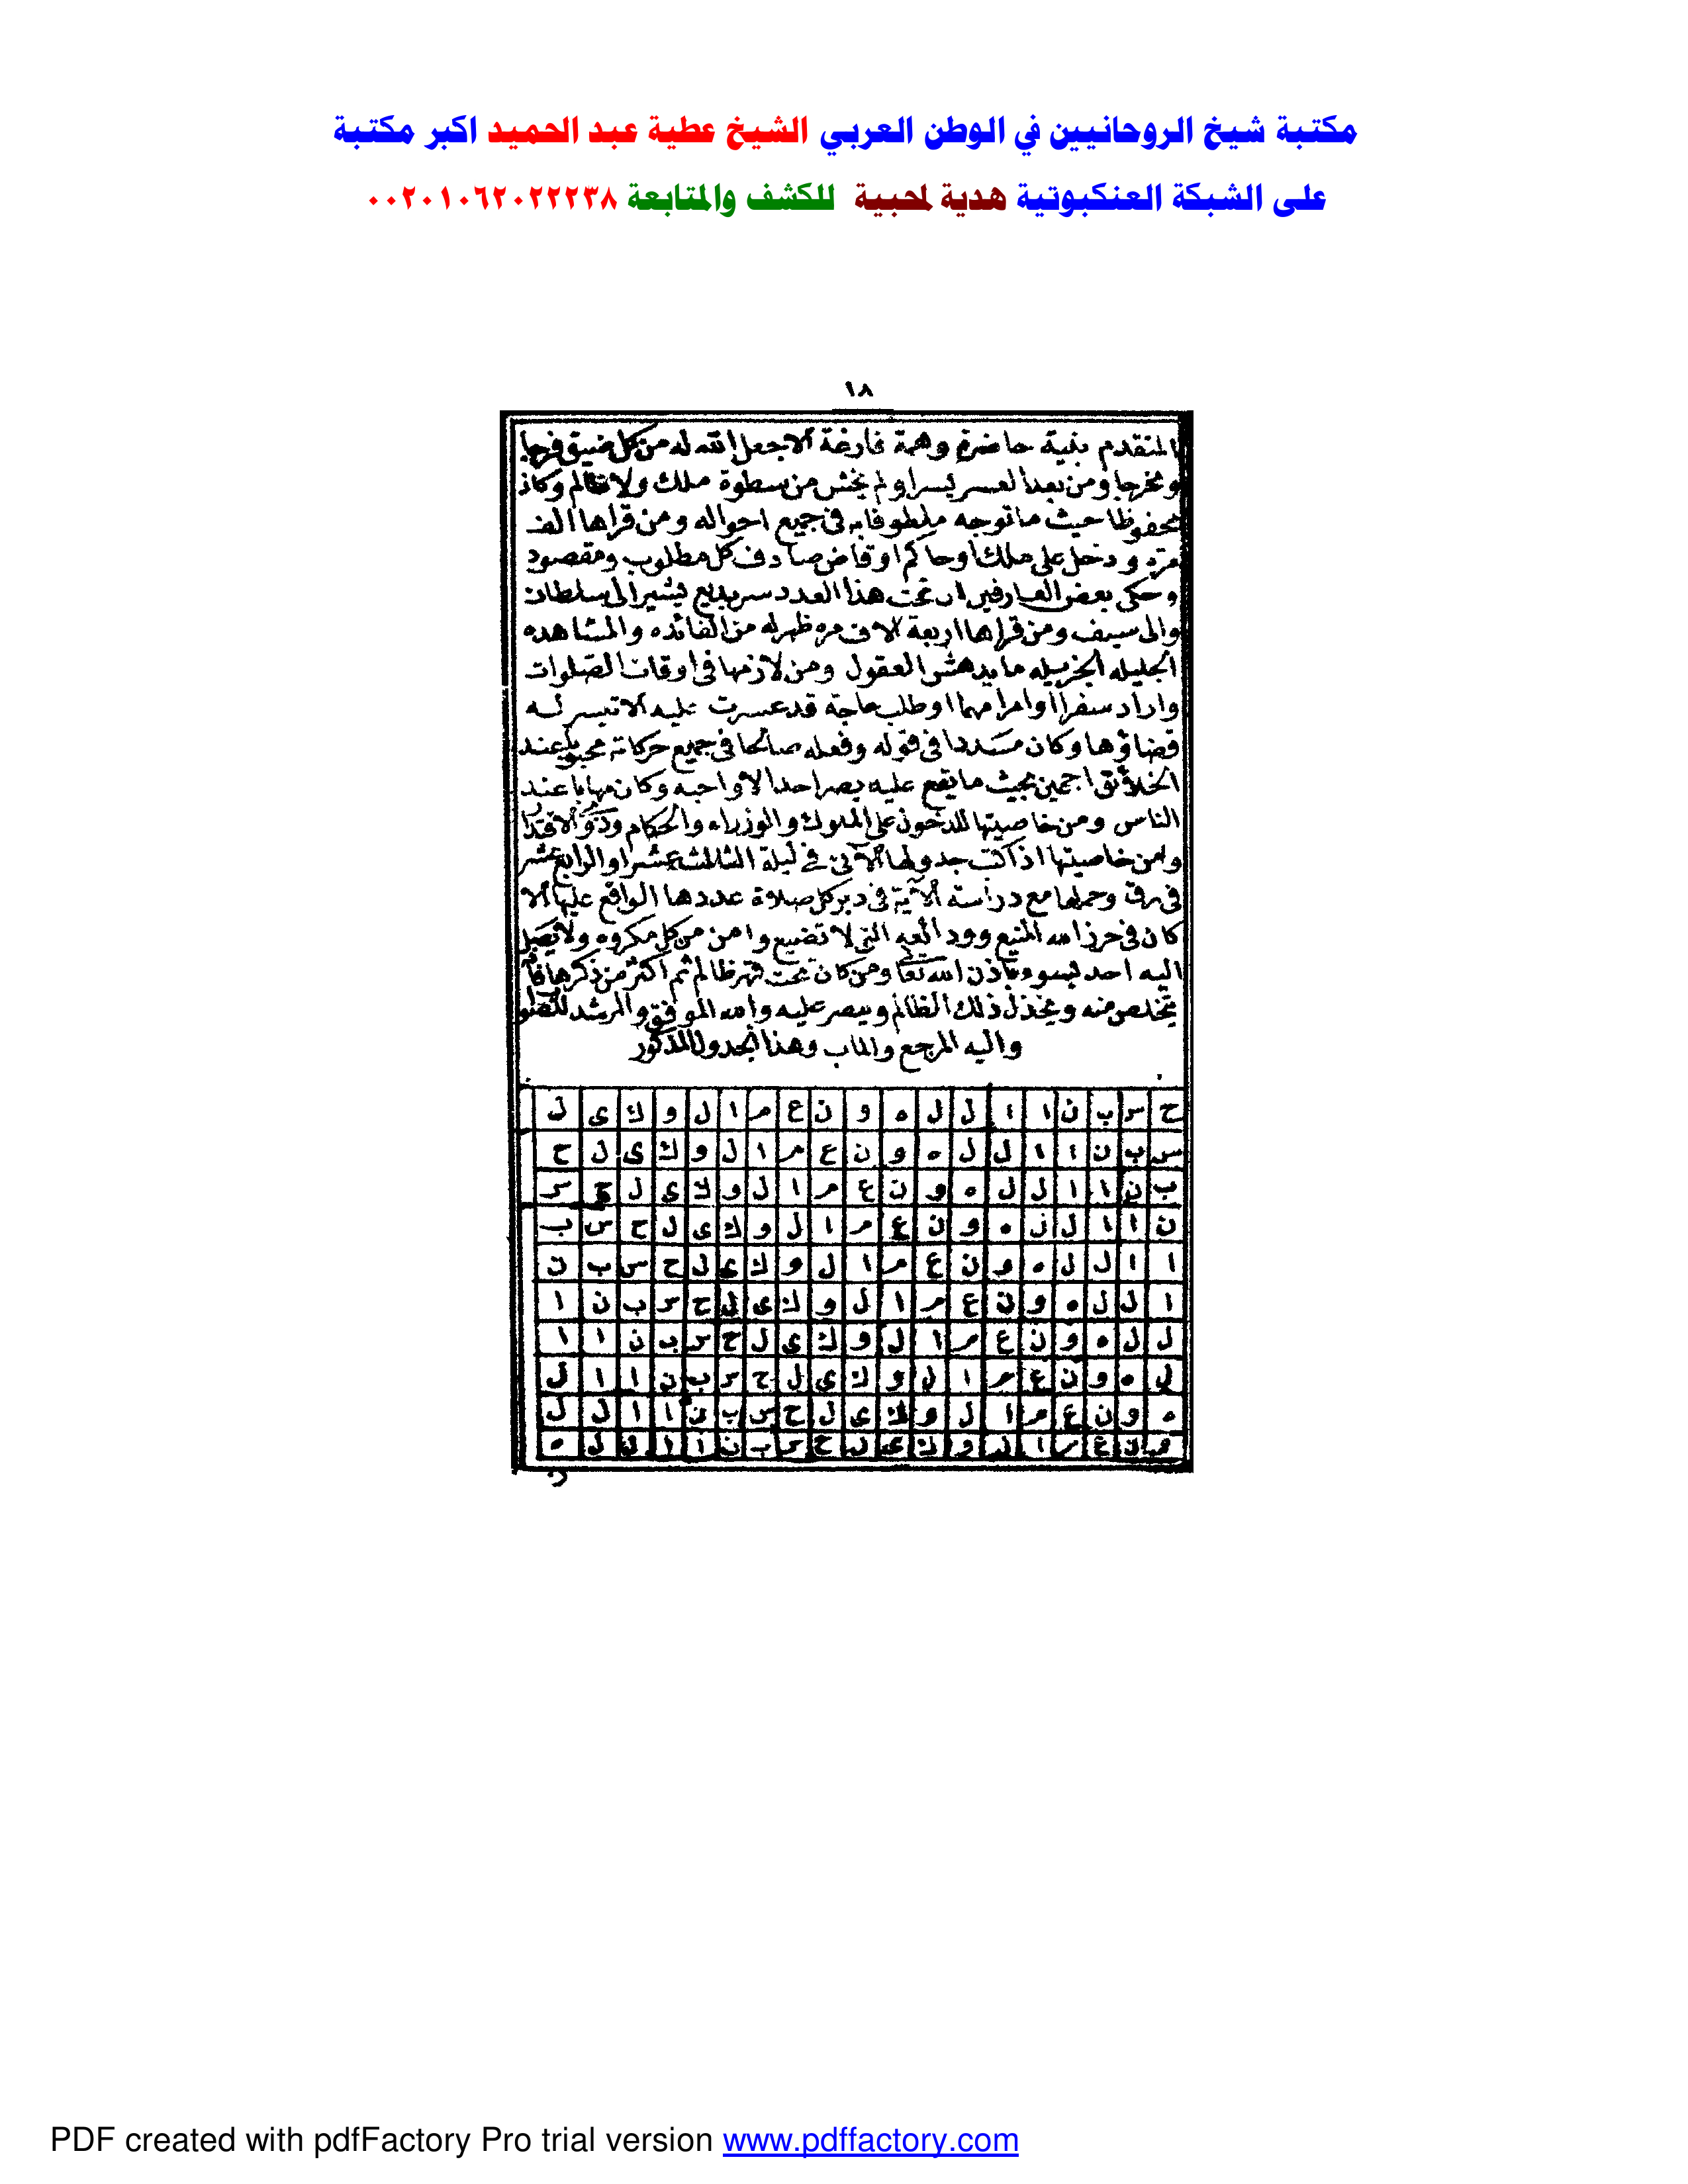 مكتبة شيخ الروحانيين في الوطن العربي الشيخ عطية عبد الحميد اكبر مكتبة
على الشبكة العنكبوتية هدية لمحبية للكشف والمتابعة ٠٠٢٠١٠٦٢٠٢٢٢٣٨
١٨
المتقدم بنية حاضرة وهمة فارغة ألا جعل الله له من كل ضيق فرجا
ومخرجا ومن بعد العسر يسرا ولم يخش من سطوة ملك ولا ظالم وكان
محفوظا حيث ما توجه ملطوفا به فى جميع احواله ومن قراها الف
مرة ودخل على ملك اوحاكم اوقاض صادف كل مطلوب ومقصود
وحكى بعض العارفين ان تحت هذا العدد سر بديع يشير الى سلطان
والى سيف ومن قراها اربعة الاف مره ظهر له من الفائده والمشاهده
الجليله الجزيله ما يدهش العقول ومن لازمها فى اوقات الصلوات
واراد سفرا اوامرا مهما اوطلب حاجة قد عسرت عليه ألا تيسر له
قضاؤها وكان مسددا فى قوله وفعله صالحا فى جميع حركاته محبوبا عند
الخلائق اجمعين بحيث ما يقع عليه بصر احد الا واحبه وكان مهابا عند
الناس ومن خاصيتها للدخول على الملوك والوزراء والحكام وذو الاقدار
ومن خاصيتها اذا كتب جدولها الآتى فى ليلة الثالثة عشر او الرابع عشر
فى رق وحملها مع دراسة الآية فى دبر كل صلاة عددها الواقع عليها ألا
كان فى حرز الله المنيع وودائعه التى لا تضيع وامن من كل مكروه ولا يصل
اليه احد بسوء باذن الله تعا ومن كان تحت قهر ظالم ثم اكثر من ذكرها فانه
يتخلص منه ويخذل ذلك الظالم وينصر عليه والله الموفق والمرشد للصواب
واليه المرجع والماب وهذا الجدول المذكور
ح س ب ن ا ا ل ل ه و ن ع م ا ل و ك ى ل
س ب ن ا ا ل ل ه و ن ع م ا ل و ك ى ل ح
ب ن ا ا ل ل ه و ن ع م ا ل و ك ى ل ح س
ن ا ا ل ل ه و ن ع م ا ل و ك ى ل ح س ب
ا ا ل ل ه و ن ع م ا ل و ك ى ل ح س ب ن
ا ل ل ه و ن ع م ا ل و ك ى ل ح س ب ن ا
ل ل ه و ن ع م ا ل و ك ى ل ح س ب ن ا ا
ل ه و ن ع م ا ل و ك ى ل ح س ب ن ا ا ل
ه و ن ع م ا ل و ك ى ل ح س ب ن ا ا ل ل
و ن ع م ا ل و ك ى ل ح س ب ن ا ا ل ل ه
ن
PDF created with pdfFactory Pro trial version www.pdffactory.com